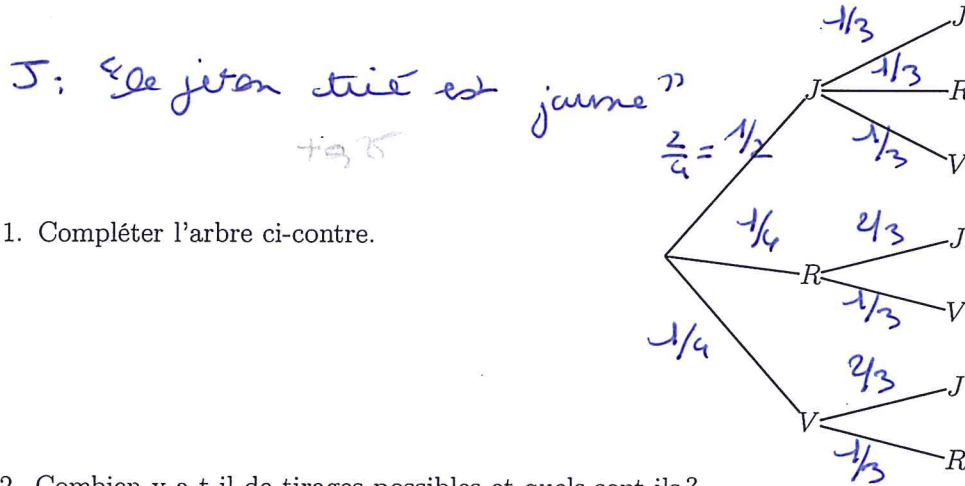 J: "Le jeton tiré est jaune"
1. Compléter l'arbre ci-contre.
1/3 J
J 1/3 R
1/3 V
2/4 = 1/2
1/4 R 2/3 J
1/3 V
1/4 V 2/3 J
1/3 R
2. Combien y a-t-il de tirages possibles et quels sont-ils ?